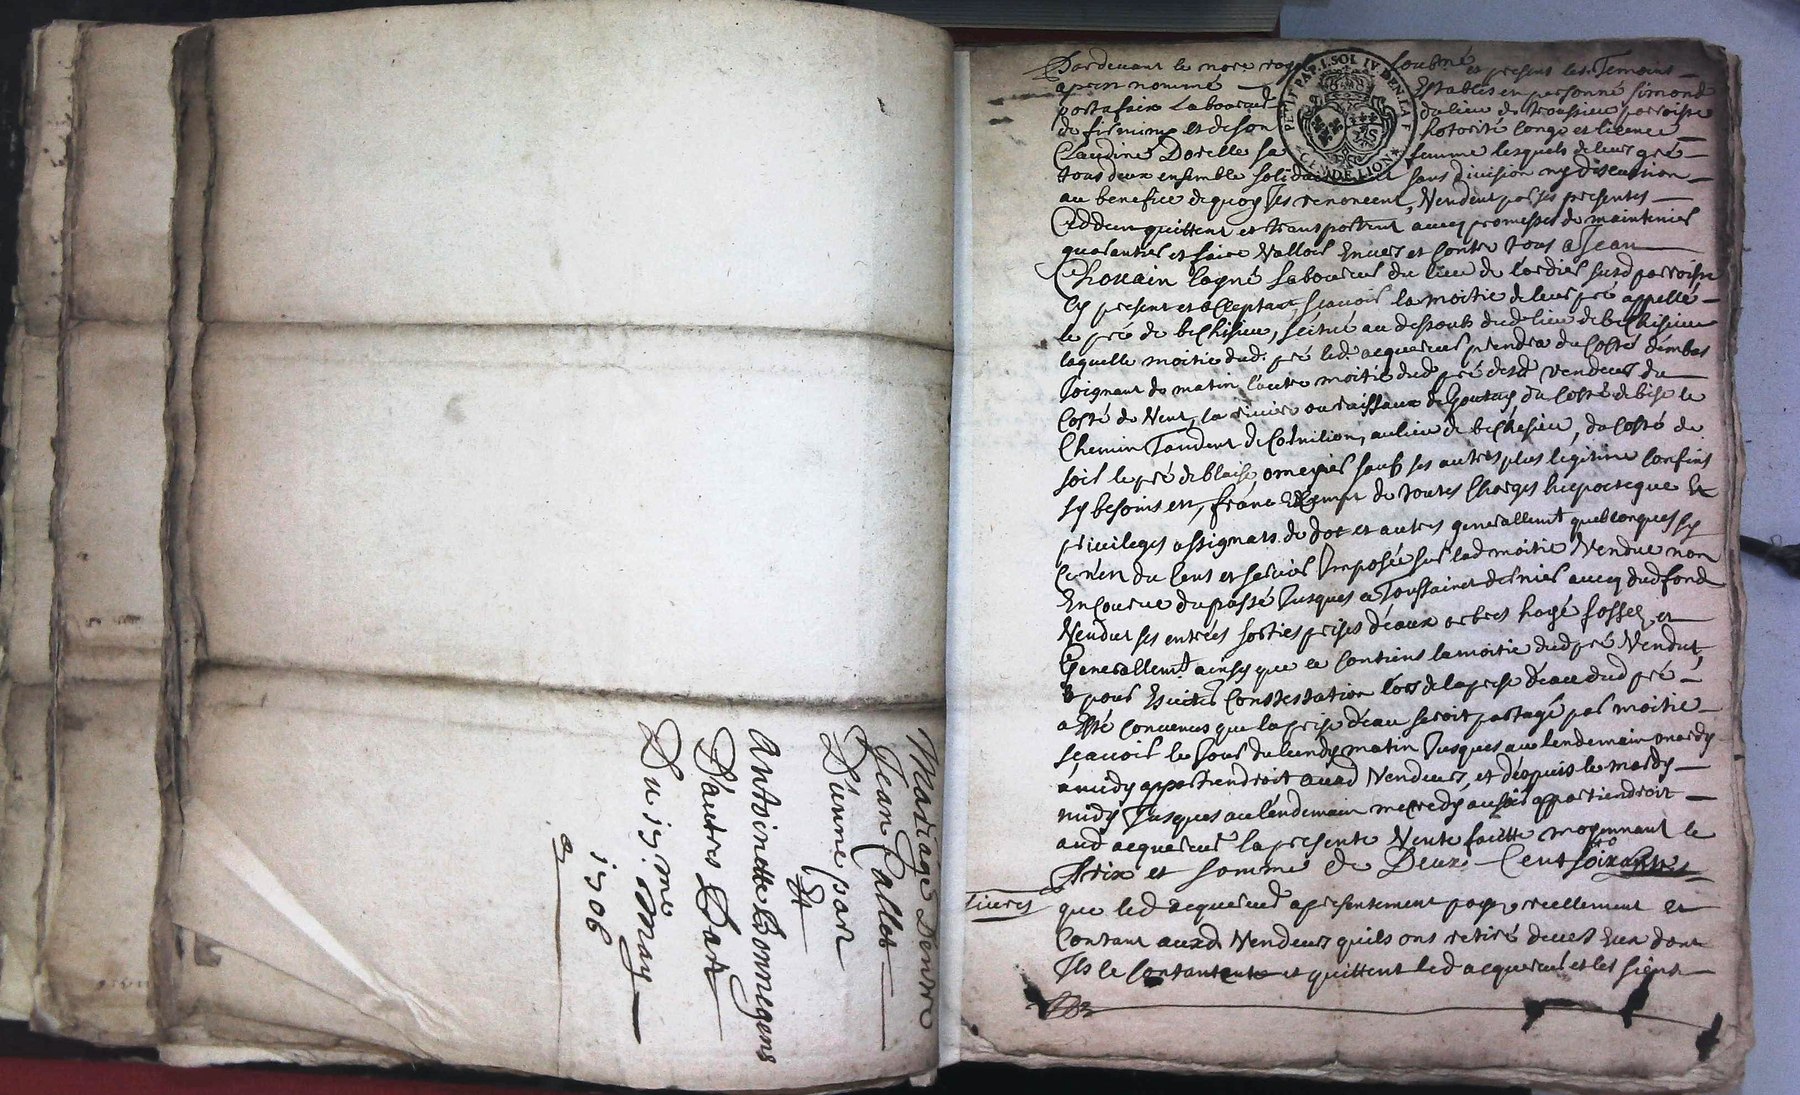 Mariage D'entre
Jean Callet
D'unne part
Et
Antoinette Bonnegens
D'autres Part
Du 17me. may
1706
PETIT PAP. 1. SOL IV DEN. LA F
GE. DE LION
Pardevant le nore royal soubné et present les Temoins
apres nommé Establis en personne Simond
portafaix Laboureur du lieu de troussieu parroisse
de firminy et de son hotorité congé et licence
Claudine Dorelle sa femme lesquels de leur gré
tous deux ensemble solidairement sans division ny discution
au benefice de quoy Ils renoncent, Vendent par ses presentes
Ceddent quittent et transportent avec promesses de maintenir
guarantir et faire Valloir Envers et Contre Tous a Jean
Chouain layné Laboureur du lieu de lardier susd parroisse
Cy present et acceptant scavoir la moitié de leur pré appellé
le pré de bechisieu, scitué au dessoubs dud lieu de bechisieu
laquelle moitié dud. pré led. acquereur prendra du Costé dembas
Joignant de matin l'autre moitié dud pré desd vendeurs du
Costé de Vent, la riviere ou ruissaux de Goutay du Costé de bise le
Chemin Tandent de Cornilion, au lieu de bechesieu, du Costé de
soir le pré de blaise omeyer sauf ses autres plus legitime Confins
sy besoins est, franc Exempt de toutes Charges hiepotecque Et
privileges assignats de dot et autres generallemt quelconques sy
Ce n'est du Cens et servis Imposée sur lad moitié Vendue non
Encourue du passé Jusques a Toussainct dernier avecq dud fond
Vendut ses entrées sorties prises d'eaux arbres hayé fossez et
Generallemt. ainsy que ce Contient la moitié dud pré Vendut,
& pour Eviter Constestation lors de la prise d'eau dud pré
a Esté Convenus que la prise d'eau seroit partagé par moitié
scavoir le Jour du lundy matin Jusques au lendemain mardy
a midy appartiendroit ausd Vendeurs, et depuis le mardy
midy Jusques au lendemain mecredy au soir appartiendroit
aud acquereur la presente Vente faitte moyennant le
Prix et somme de Deux Cent soixante
livres
que led acquereur a presentement payé reellement et
Contant auxd Vendeurs quils ont retiré devers Eux dont
Ils le Contantent et quittent led acquereur et les siens